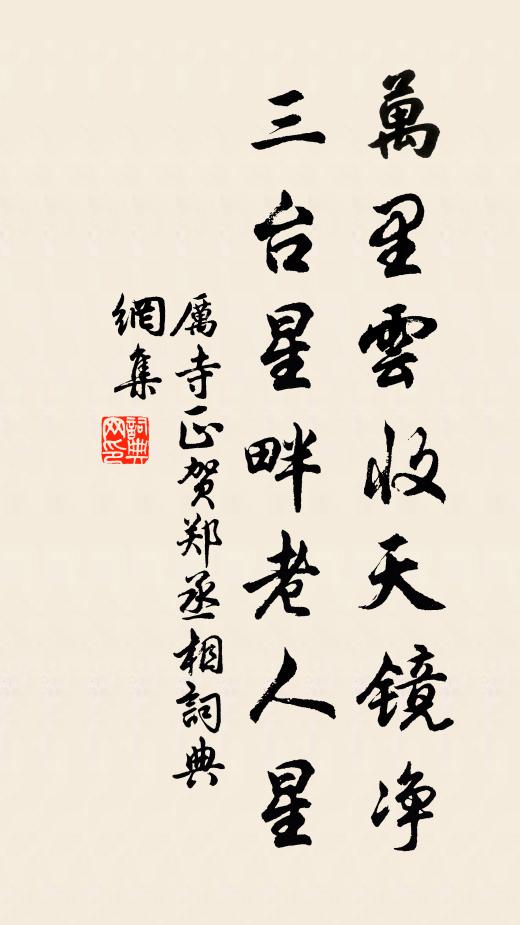 萬里雲收天镜净
三台星畔老人星
厲寺正贺郑丞相詞典
網集
詞典
网印